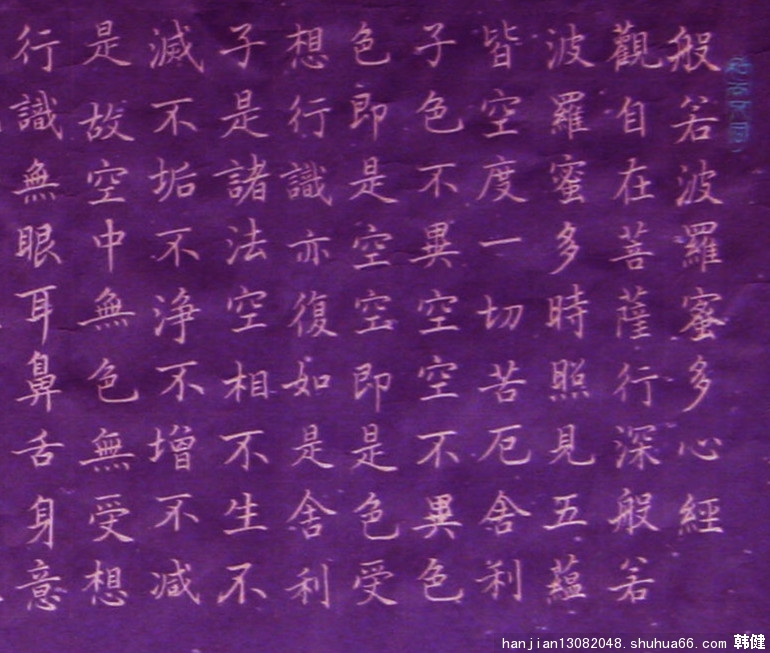 般若波羅蜜多心經
觀自在菩薩行深般若
波羅蜜多時照見五蘊
皆空度一切苦厄舍利
子色不異空空不異色
色即是空空即是色受
想行識亦復如是舍利
子是諸法空相不生不
滅不垢不淨不增不減
是故空中無色無受想
行識無眼耳鼻舌身意
hanjian13082048.shuhua66.com 韩健